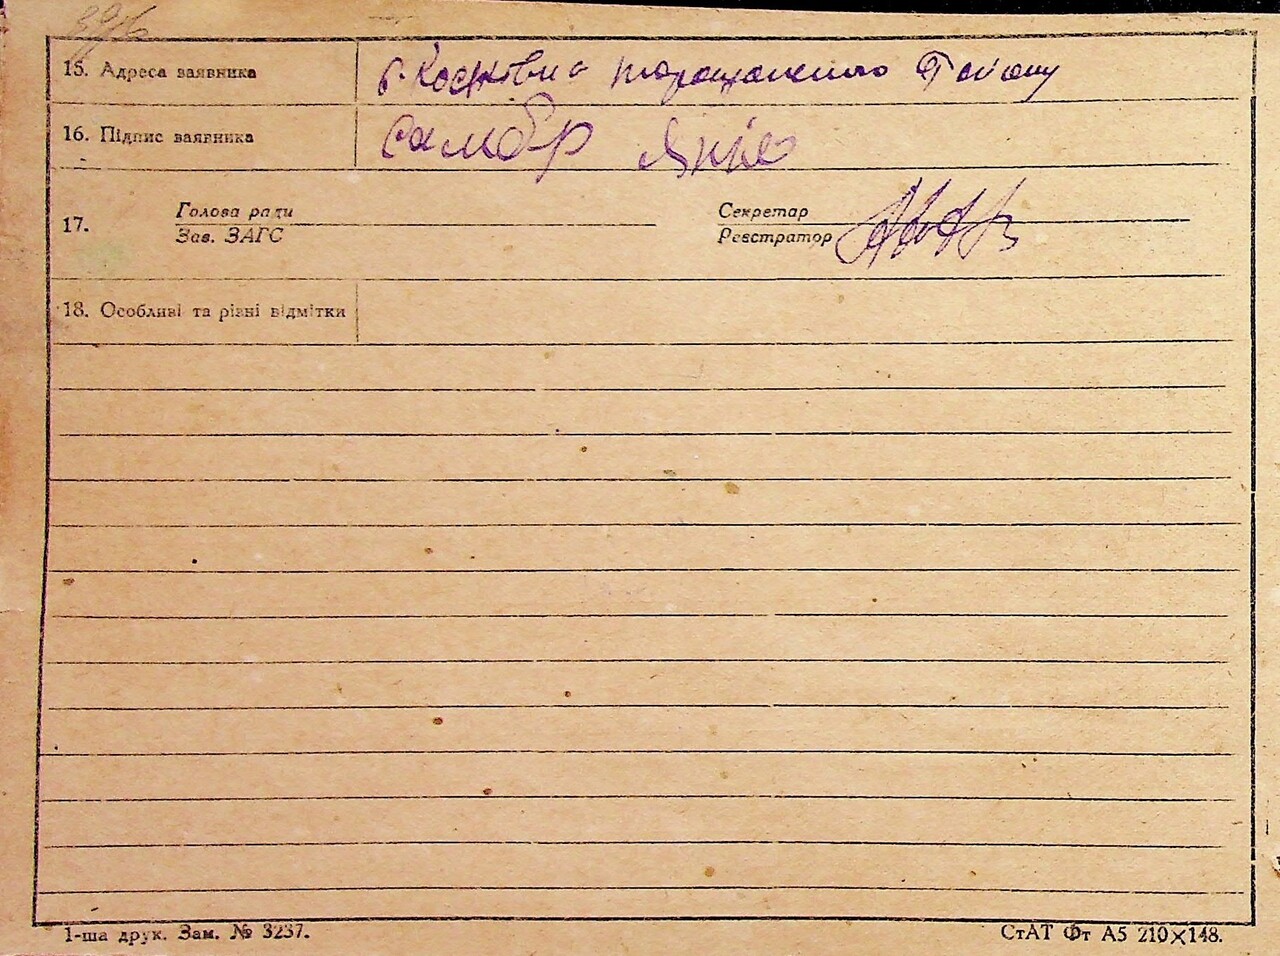 15. Адреса заявника с. Косяківка Таращанського району
16. Підпис заявника Самбір
Голова ради Секретар
17.
Зав. ЗАГС Реєстратор
18. Особливі та різні відмітки
1-ша друк. Зам. № 3237. СтАТ Фт А5 210×148.